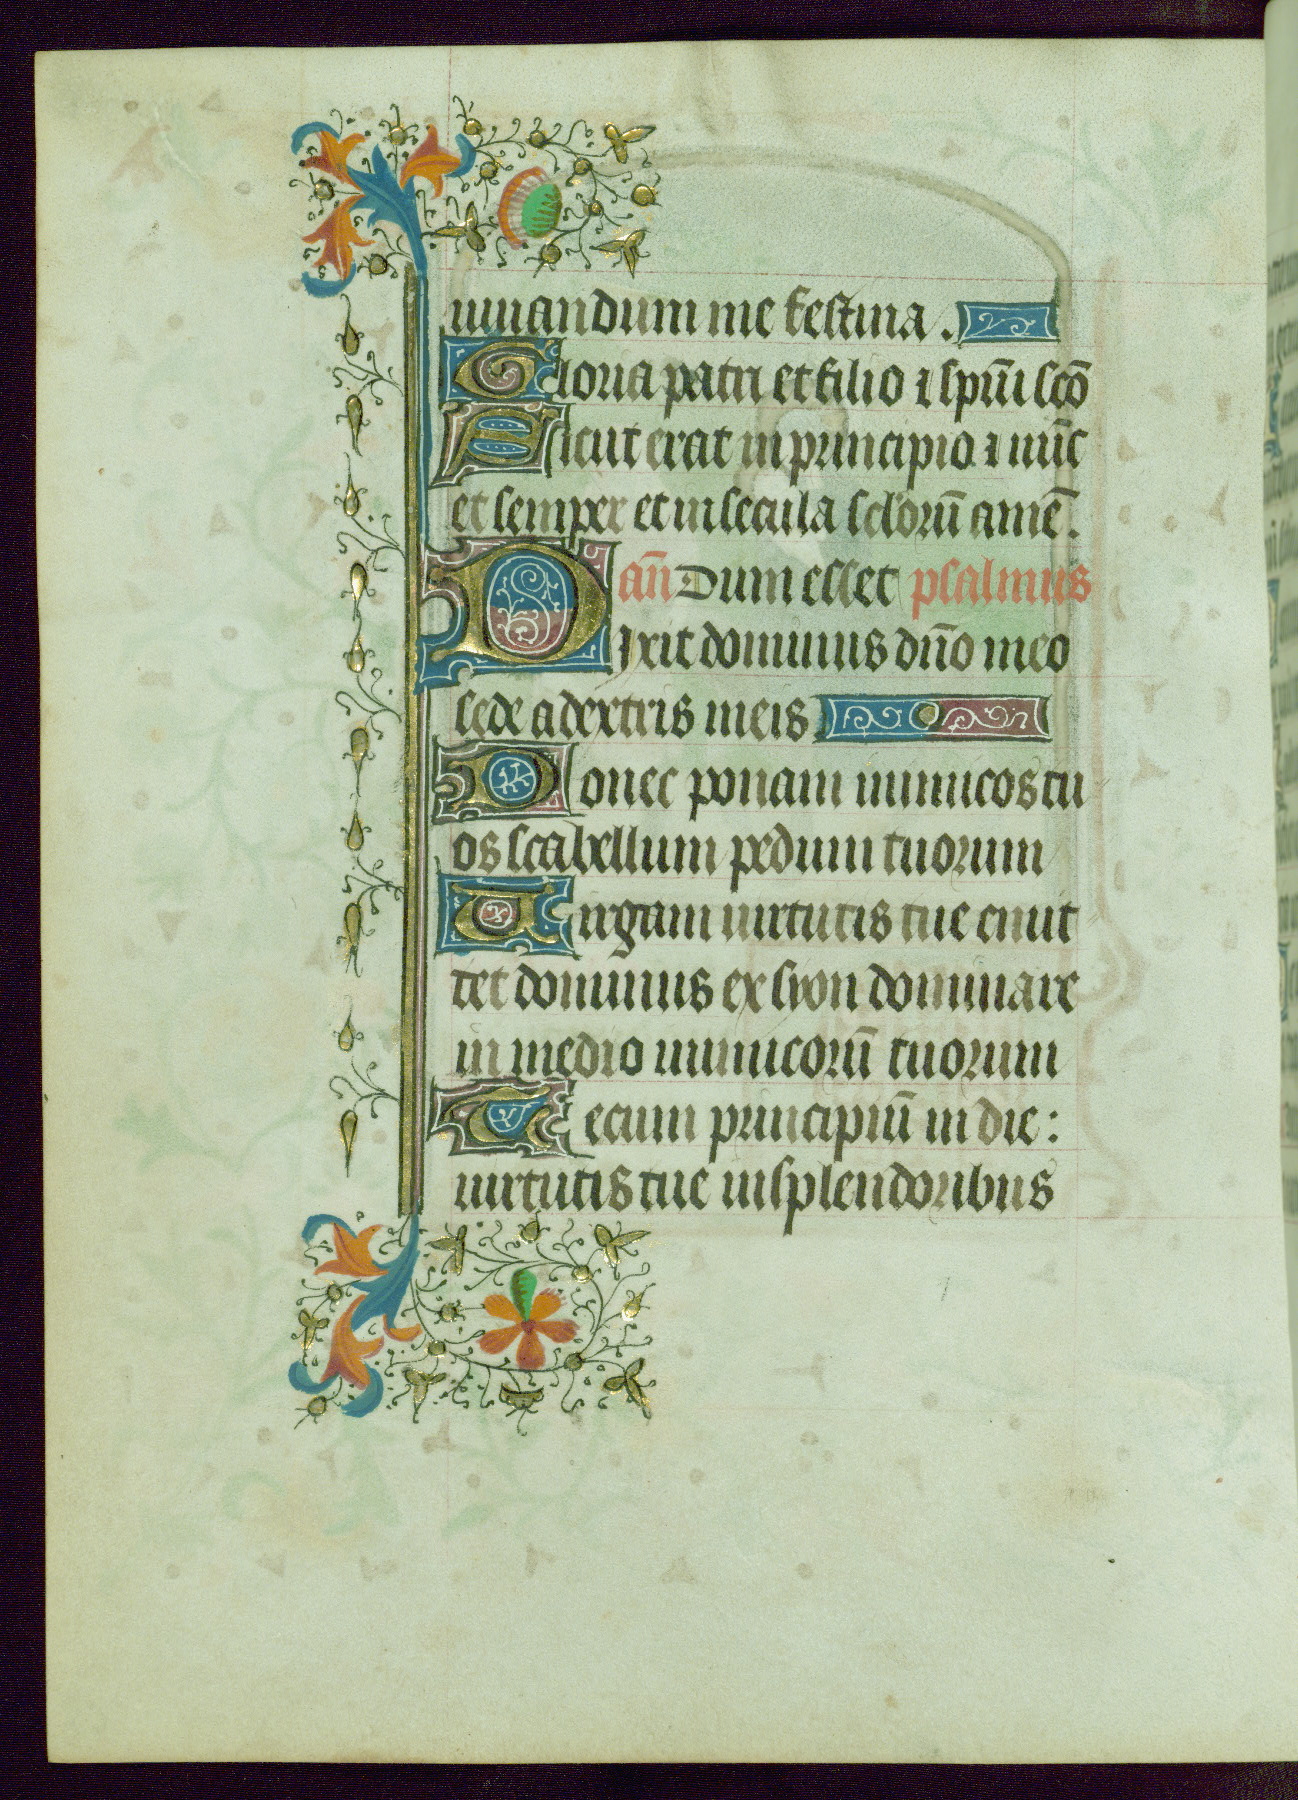 iuuandum me festina.
Gloria patri et filio ⁊ spũi scõ
Sicut erat in principio ⁊ nũc
et semper et in secula sclorũ amẽ.
añ Dum esset psalmus
Dixit dominus dño meo
sede a dextris meis
Donec ponam inimicos tu
os scabellum pedum tuorum
Uirgam uirtutis tue emit
tet dominus ex syon dominare
in medio inimicorũ tuorum
Tecum principiũ in die:
uirtutis tue in splendoribus